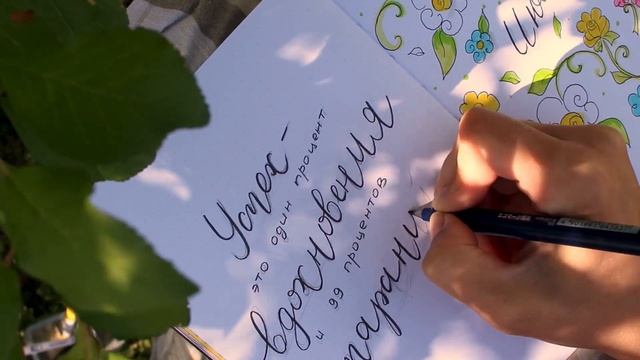 Успех-
это один процент
вдохновения
и 99 процентов
тарани